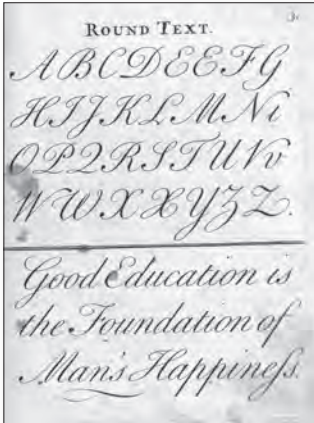 ROUND TEXT.
A B C D E E F G
H I J K L M N i
O P Q R S T U V v
W W X X Y Z Z.
Good Education is
the Foundation of
Man's Happineſs.